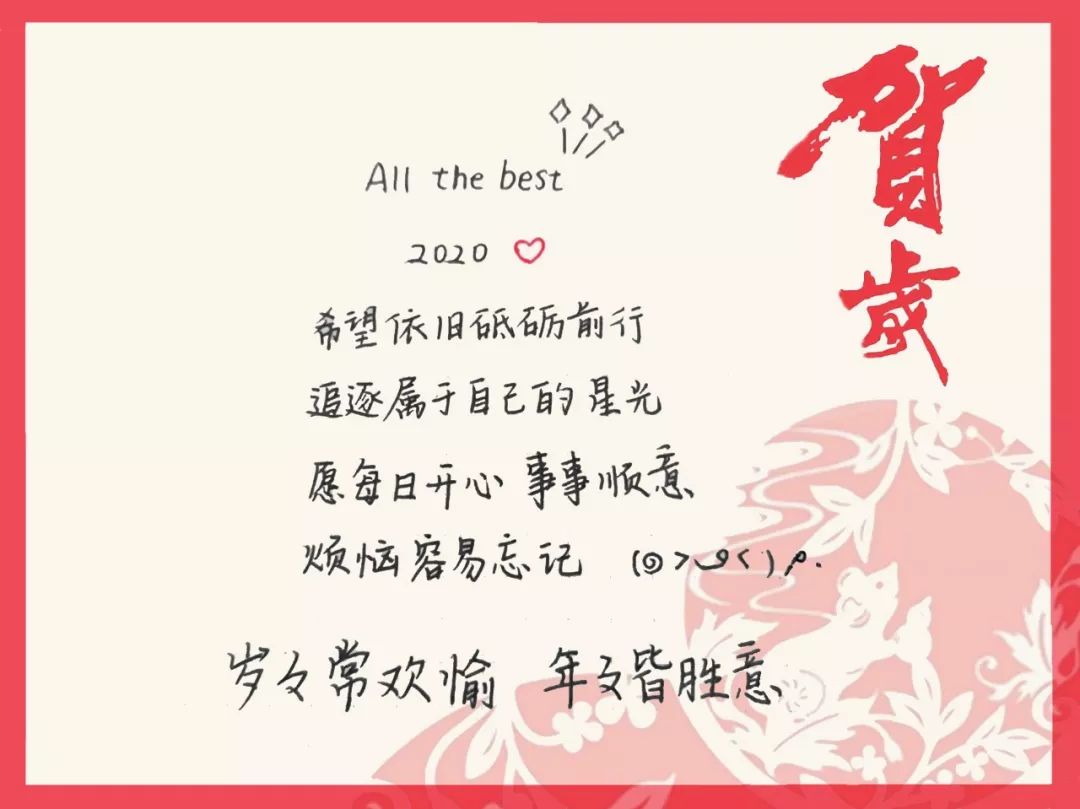 賀歲
All the best
2020
希望依旧砥砺前行
追逐属于自己的星光
愿每日开心 事事顺意
烦恼容易忘记
岁々常欢愉 年々皆胜意